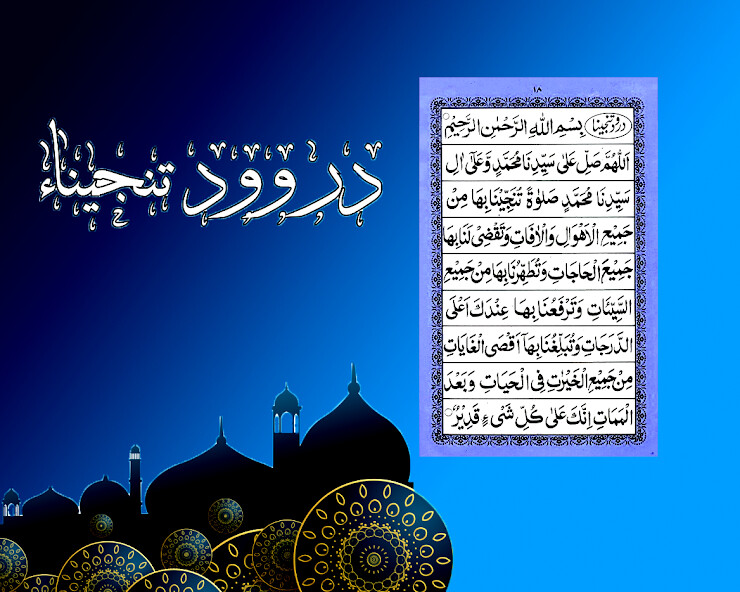 دروود تنجیناء
١٨
درود تنجینا بِسْمِ اللهِ الرَّحْمٰنِ الرَّحِيْمِ
اَللّٰهُمَّ صَلِّ عَلٰى سَيِّدِنَا مُحَمَّدٍ وَّعَلٰٓى اٰلِ
سَيِّدِنَا مُحَمَّدٍ صَلٰوةً تُنَجِّيْنَا بِهَا مِنْ
جَمِيْعِ الْاَهْوَالِ وَالْاٰفَاتِ وَتَقْضِىْ لَنَا بِهَا
جَمِيْعَ الْحَاجَاتِ وَتُطَهِّرُنَا بِهَا مِنْ جَمِيْعِ
السَّيِّئَاتِ وَتَرْفَعُنَا بِهَا عِنْدَكَ اَعْلَى
الدَّرَجَاتِ وَتُبَلِّغُنَا بِهَآ اَقْصَى الْغَايَاتِ
مِنْ جَمِيْعِ الْخَيْرٰتِ فِى الْحَيَاتِ وَبَعْدَ
الْمَمَاتِ اِنَّكَ عَلٰى كُلِّ شَىْءٍ قَدِيْرٌ